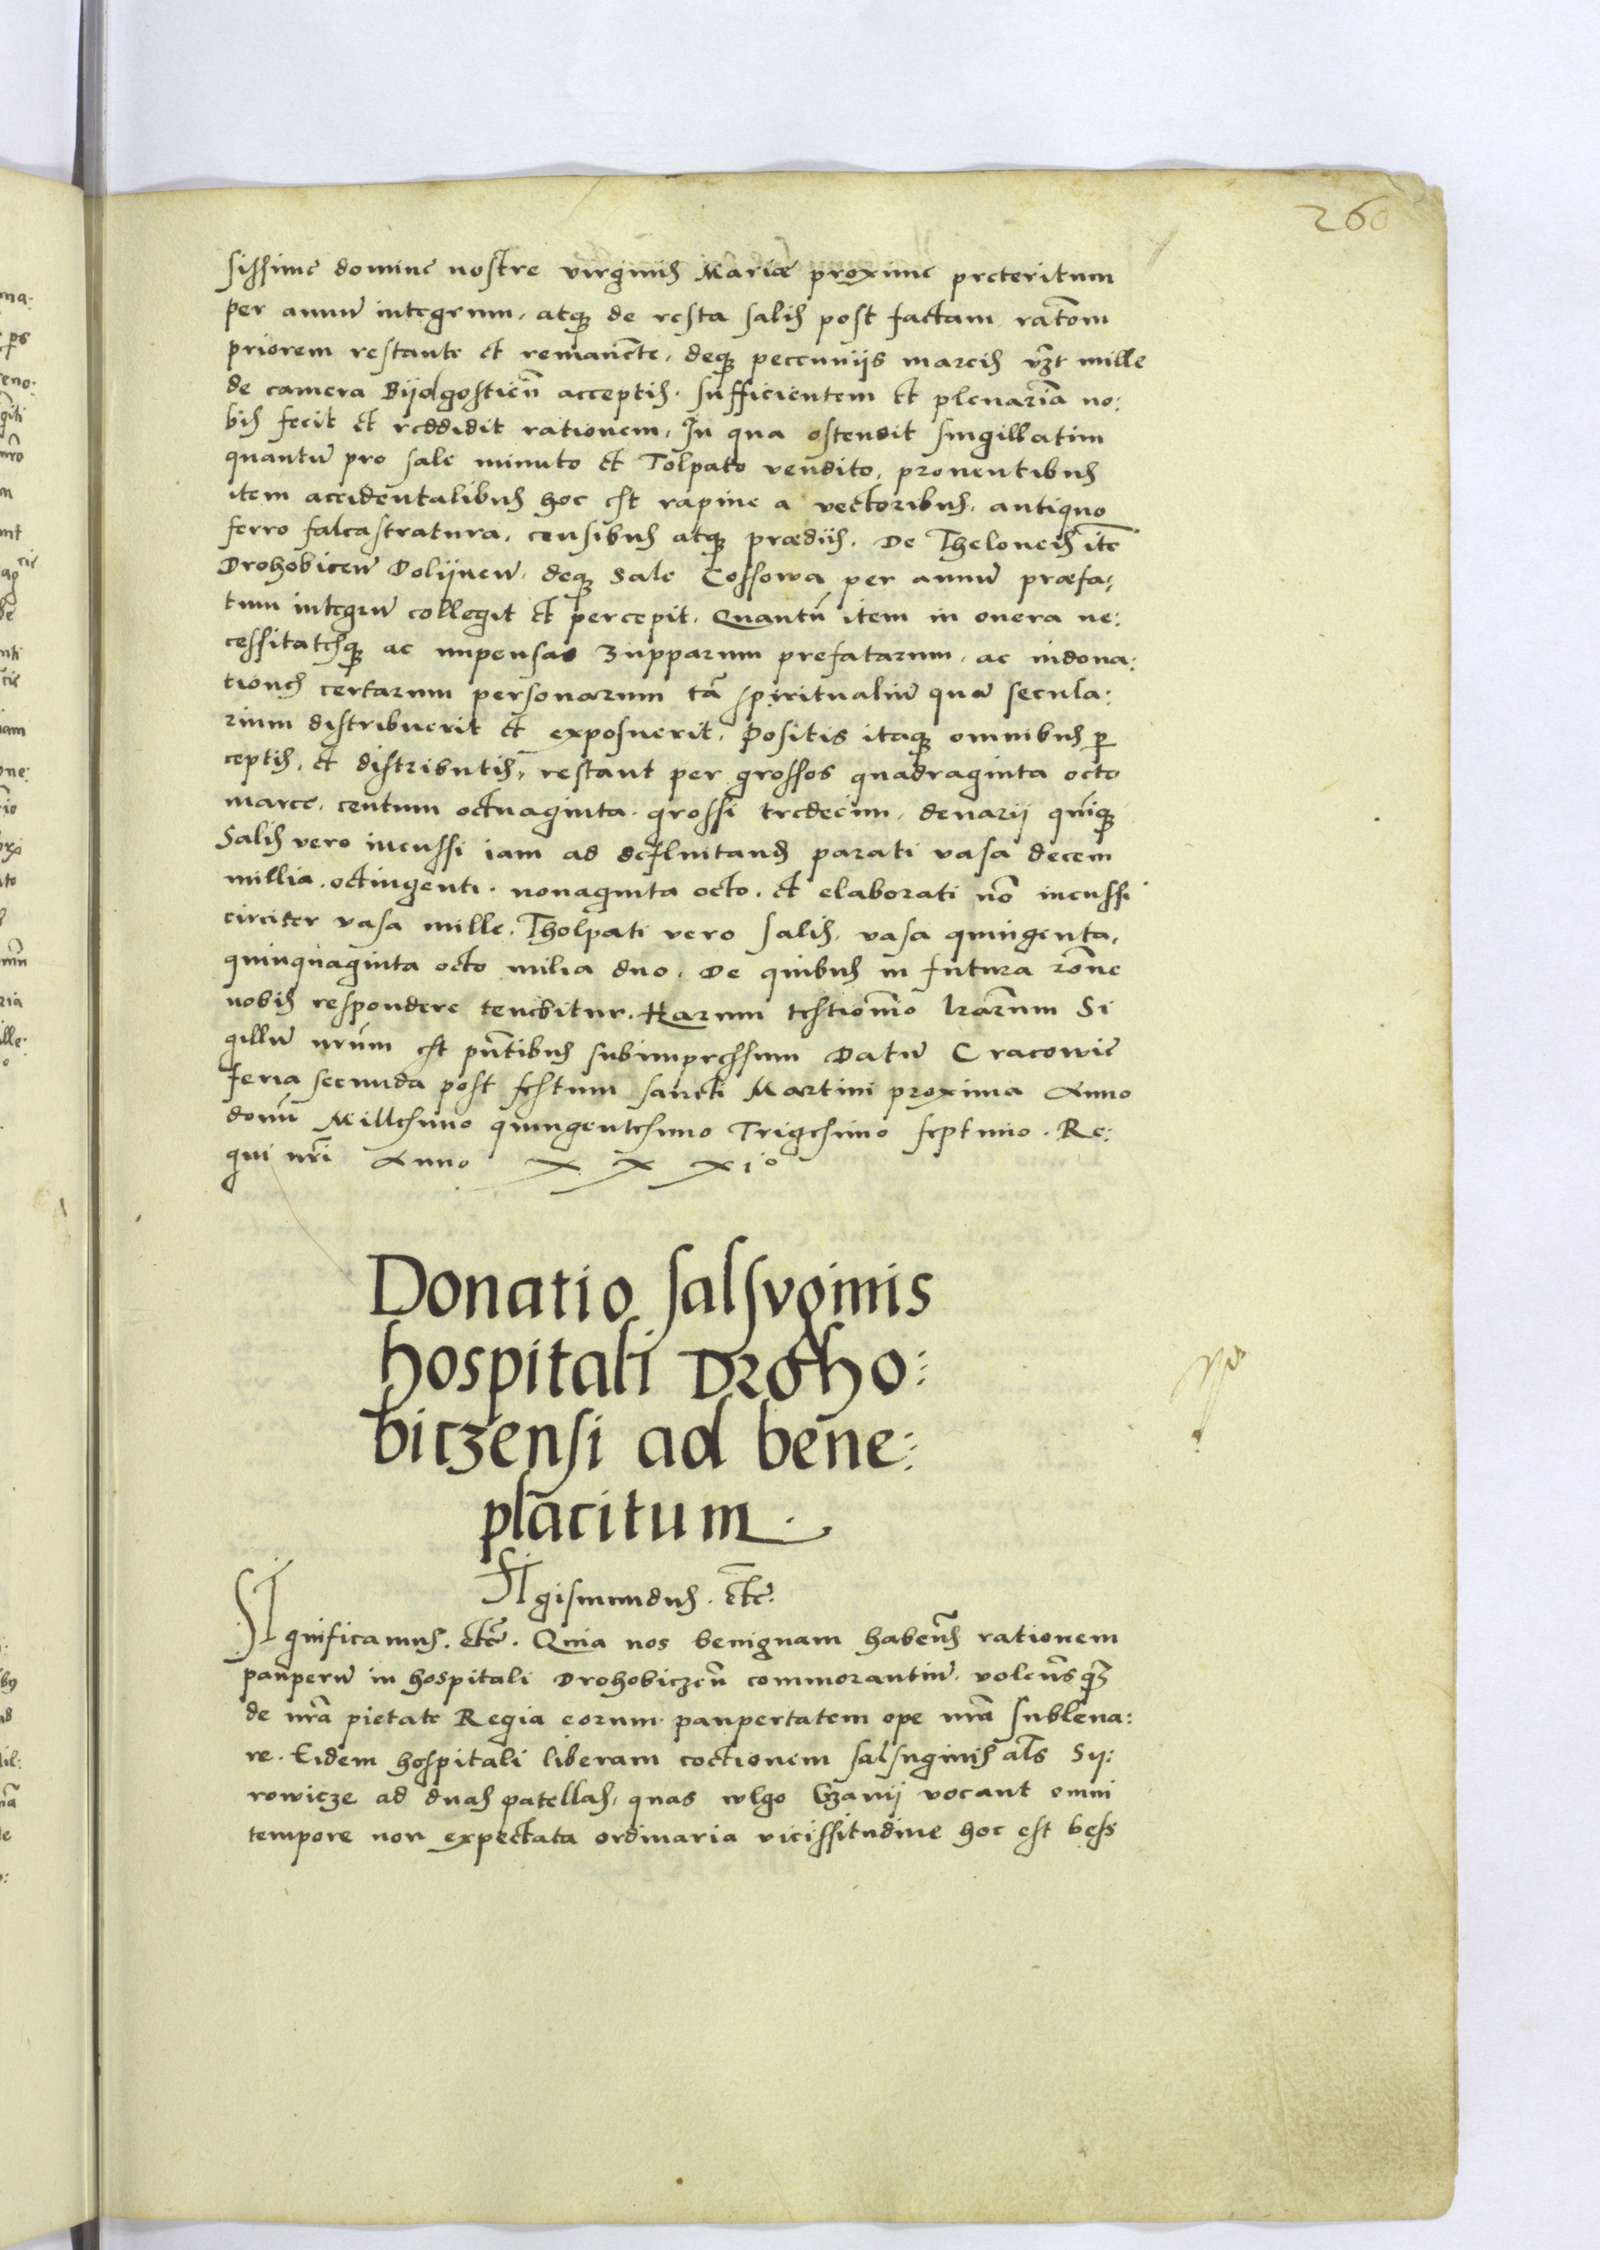 260
sissime domine nostre virginis Mariæ proxime preteritum
per annũ integrum, atq̃ de resta salis post factam rat̃om
priorem restante et remanẽte, deq̃ peccuniis marcis vz̃t mille
de camera Bijdgosticñ acceptis. sufficientem et plenariã no:
bis fecit et reddidit rationem, In qua ostendit singillatim
quantũ pro sale minuto et Tolpato vendito, prouentibus
item accidentalibus hoc est rapine a vectoribus, antiquo
ferro falcastratura, censibus atq̃ prædiis. De Theloneis itẽ
Drohobicen̄ Dolijnen̄, deq̃ sale Cossowa per annũ præfa:
tum integrũ collegit et percepit. Quantũ item in onera ne:
cessitatesq̃ ac impensas zupparum prefatarum, ac in dona:
tiones certarum personarum tã spiritualiũ quã secula:
rium distribuerit et exposuerit. Positis itaq̃ omnibus ꝑ
ceptis, et distributis, restant per grossos quadraginta octo
marce, centum octuaginta. grossi tredecim, denarij quinq̃
Salis vero incussi iam ad defluitand̃ parati vasa decem
millia. octingenti. nonaginta octo. et elaborati nõ incussi
circiter vasa mille. Tholpati vero salis, vasa quingenta,
quinquaginta octo milia duo. De quibus in futura rõne
nobis respondere tenebitur. Harum testiom̃o lrãrum Si
gillũ nr̃um est pñtibus subimpressum Datũ Cracowie
feria secunda post festum sancti Martini proxima Anno
domĩ Millesimo quingentesimo Trigesimo septimo. Re:
gni nr̃i Anno X X XI°
Donatio salsuginis
hospitali Droho:
biczensi ad bene:
placitum.
SIgismundus. etc̃.
SIgnificamus. etc̃. Quia nos benignam habeñs rationem
pauperũ in hospitali Drohobiczeñ commorantiũ. voleñsq̃
de nr̃a pietate Regia eorum paupertatem ope nr̃a subleua:
re. Eidem hospitali liberam coctionem salsuginis al̃s Sy:
rowicze ad duas patellas, quas wlgo Czanij vocant omni
tempore non expectata ordinaria vicissitudine hoc est bess